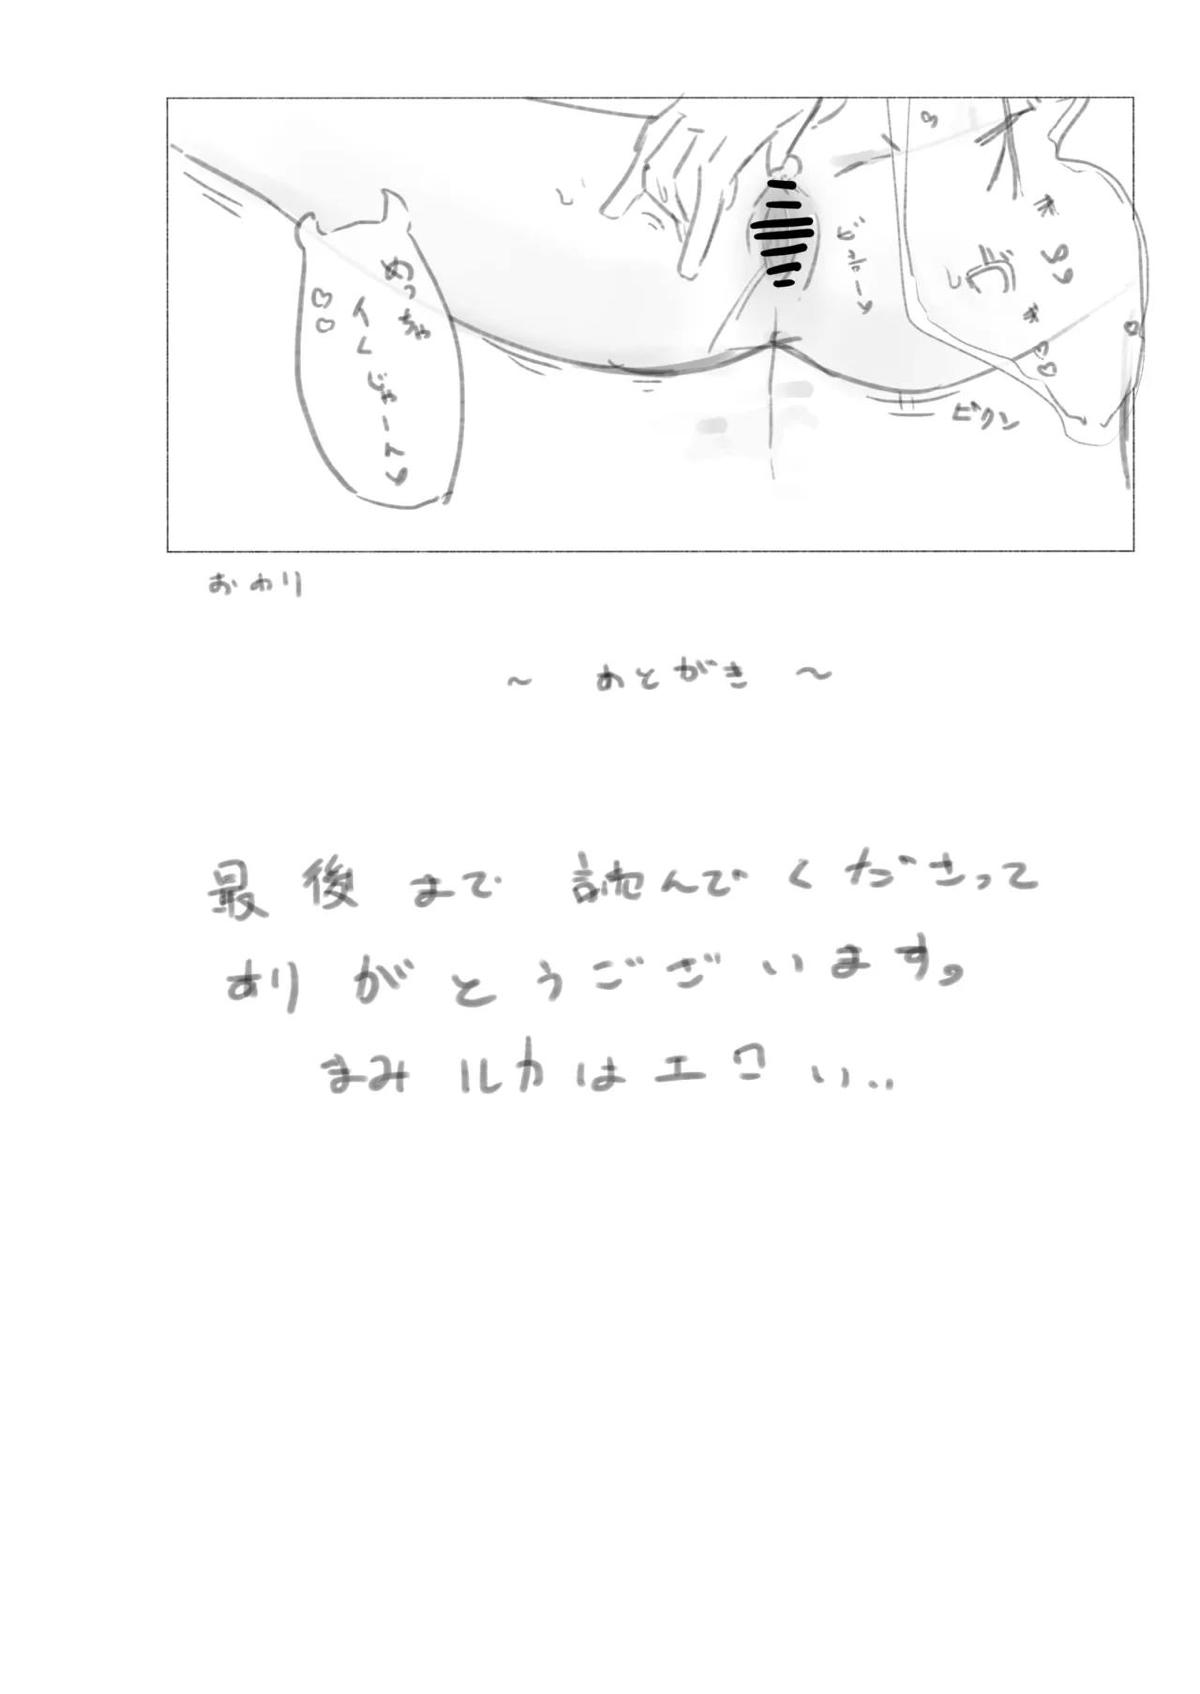 めっちゃ
イくじゃーん
ビクン
おわり
～ あとがき ～
最後まで読んでくださって
ありがとうございます。
まみルカはエロい..